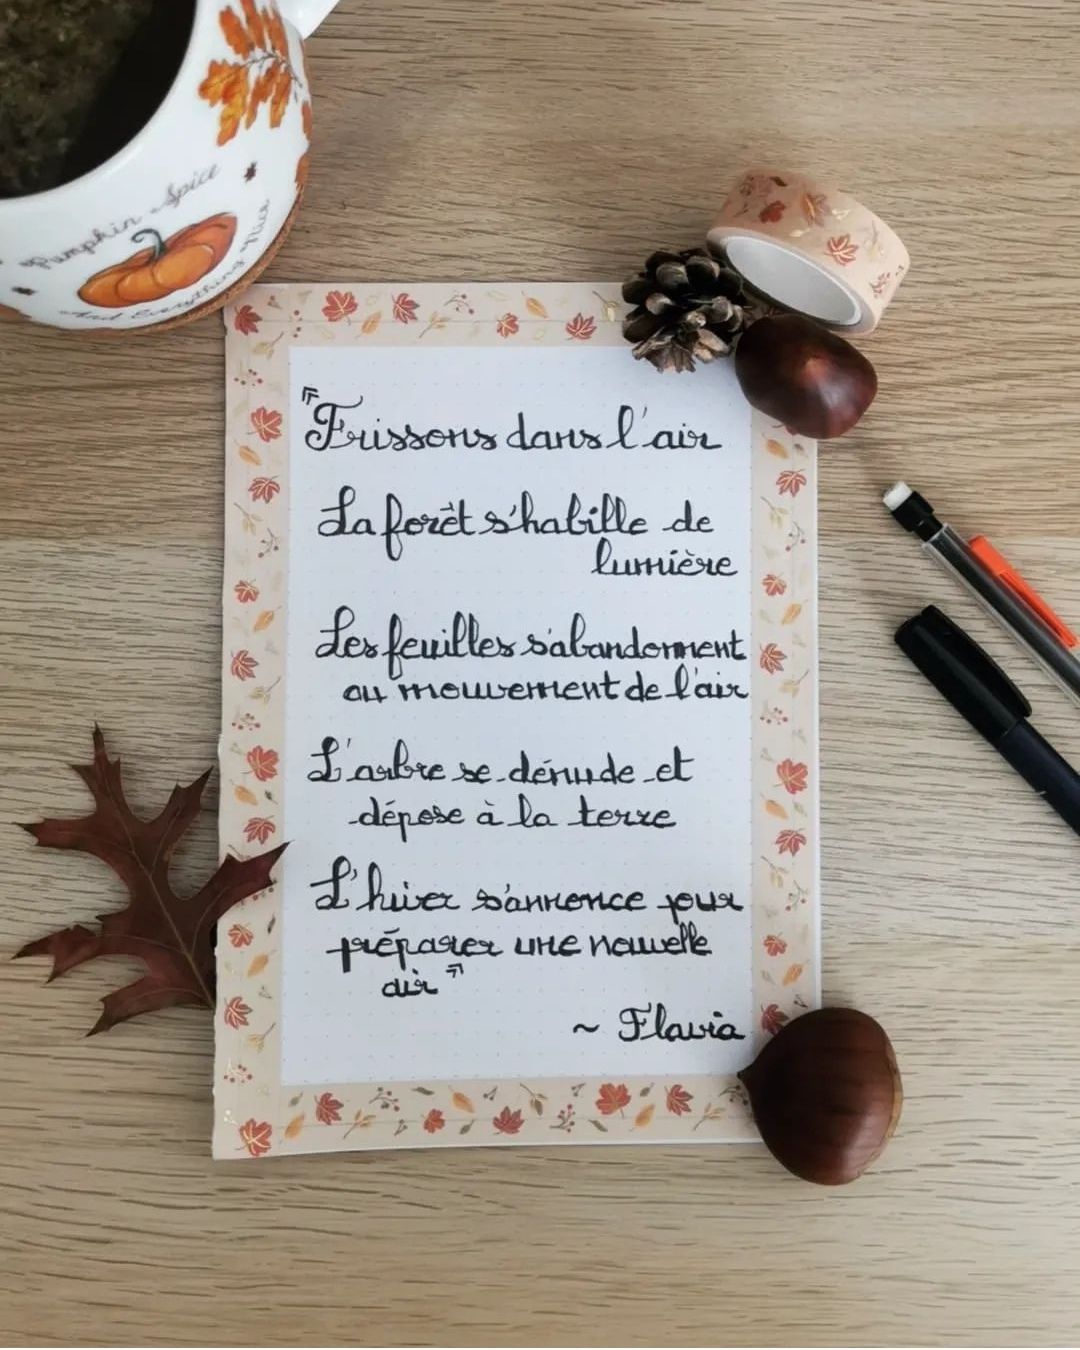 Pumpkin Spice
And Everything Nice
«Frissons dans l'air
La forêt s'habille de
lumière
Les feuilles s'abandonnent
au mouvement de l'air
L'arbre se dénude et
dépose à la terre
L'hiver s'annonce pour
préparer une nouvelle
air»
~ Flavia